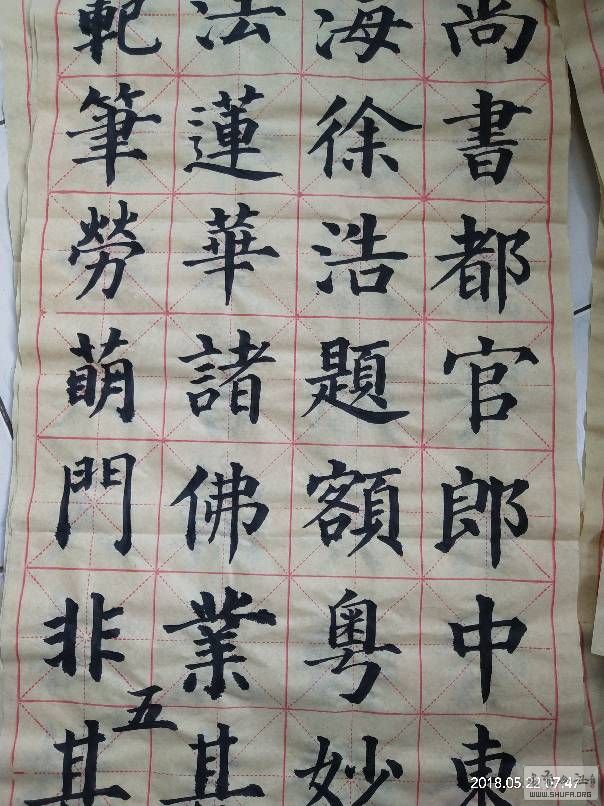 尚書都官郎中東
海徐浩題額粵妙
法蓮華諸佛業其
範筆勞萌門非其
五
2018.05.22 07:47
WWW.SHUFA.ORG